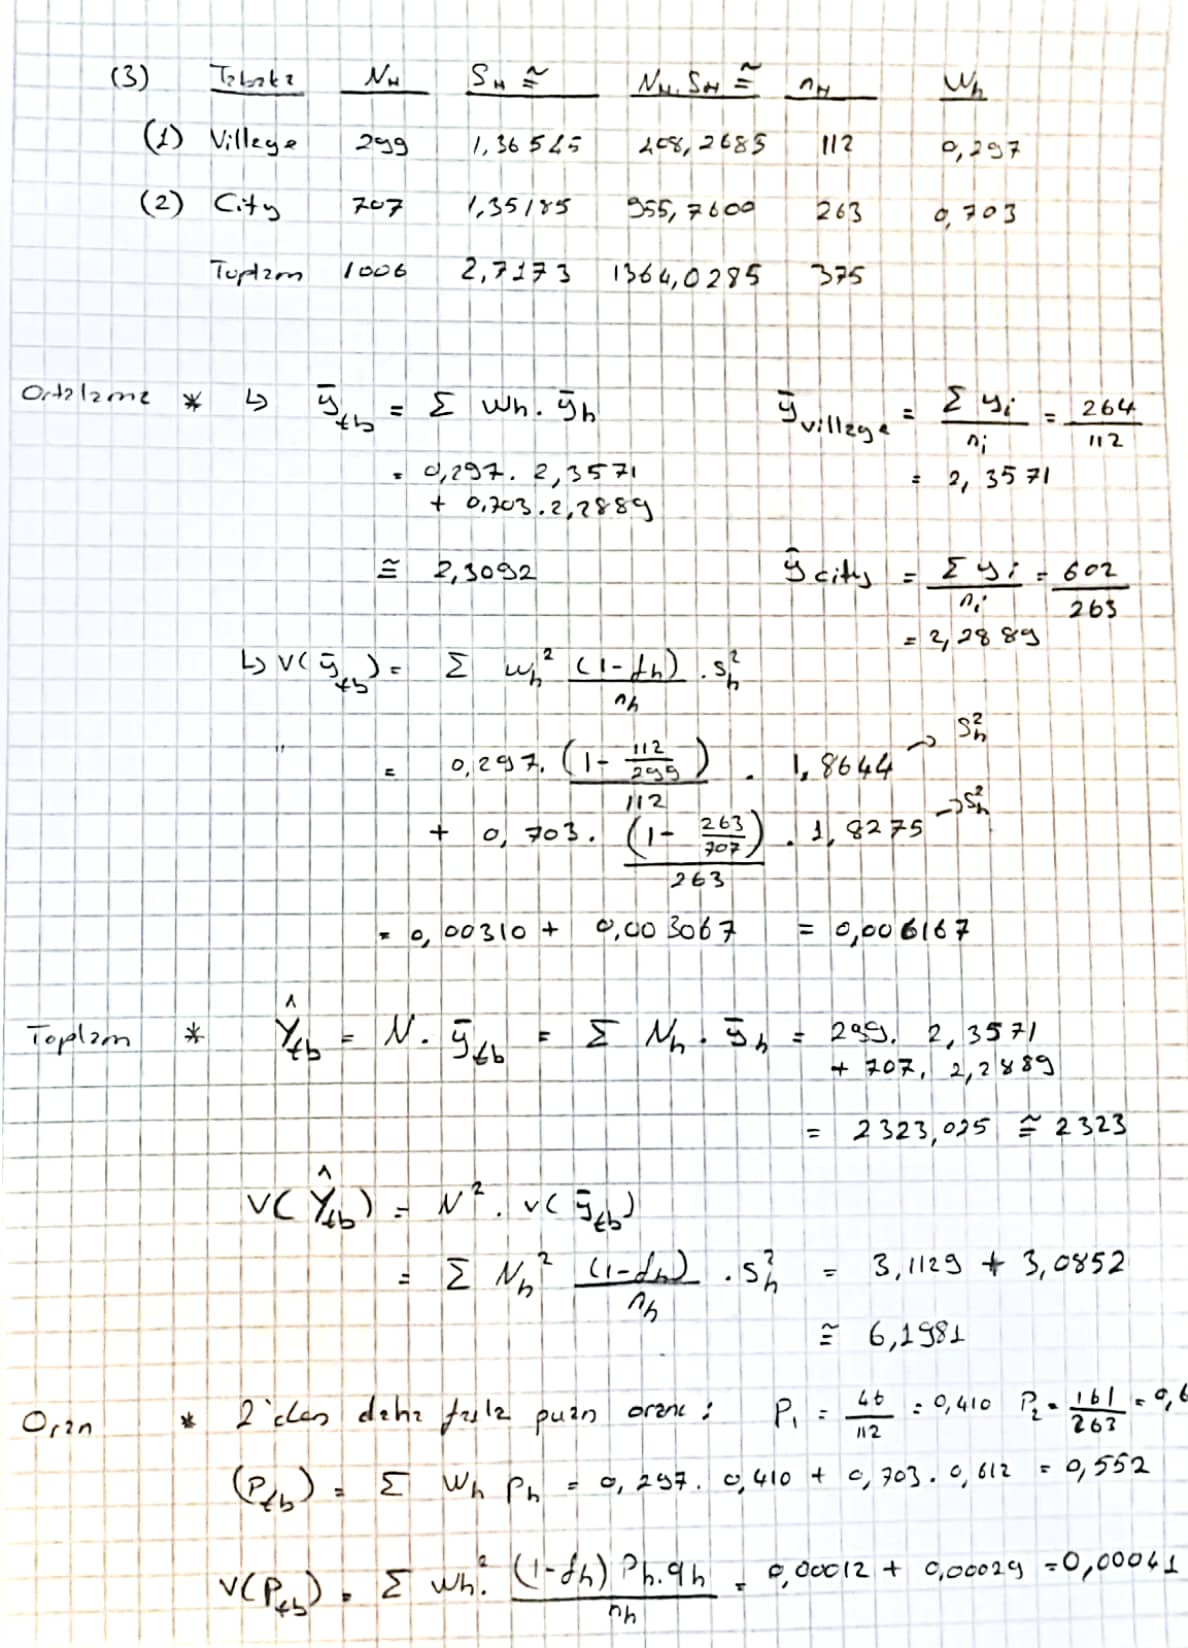 (3) Tabaka N_H S_H ≅ N_H.S_H ≅ n_H W_h
(1) Village 299 1,36545 408,2685 112 0,297
(2) City 707 1,35185 955,7600 263 0,703
Toplam 1006 2,7173 1364,0285 375
Ortalama * ↳ ȳ_tb = Σ Wh. ȳh
ȳ_village = Σ yi / ni = 264 / 112
= 0,297. 2,3571
+ 0,703. 2,2889
= 2,3571
≅ 2,3092
ȳ city = Σ yi / ni = 602 / 263
= 2,2889
↳ V(ȳ_tb) = Σ Wh² (1-fh) / nh . S²h
" = 0,297. (1- 112/299) / 112 . 1,8644 → S²h
+ 0,703. (1- 263/707) / 263 . 1,8275 → S²h
= 0,00310 + 0,003067 = 0,006167
Toplam * Ŷ_tb = N. ȳ_tb = Σ Nh. ȳh = 299. 2,3571
+ 707. 2,2889
= 2323,025 ≅ 2323
V(Ŷ_tb) = N². v(ȳ_tb)
= Σ Nh² (1-fh) / nh . S²h = 3,1129 + 3,0852
≅ 6,1981
Oran * 2'den daha fazla puan oranı: P₁ = 46 / 112 = 0,410 P₂ = 161 / 263 = 0,6
(P_tb) = Σ Wh Ph = 0,297. 0,410 + 0,703. 0,612 = 0,552
V(P_tb) = Σ Wh². (1-fh) Ph.qh / nh = 0,00012 + 0,00029 = 0,00041